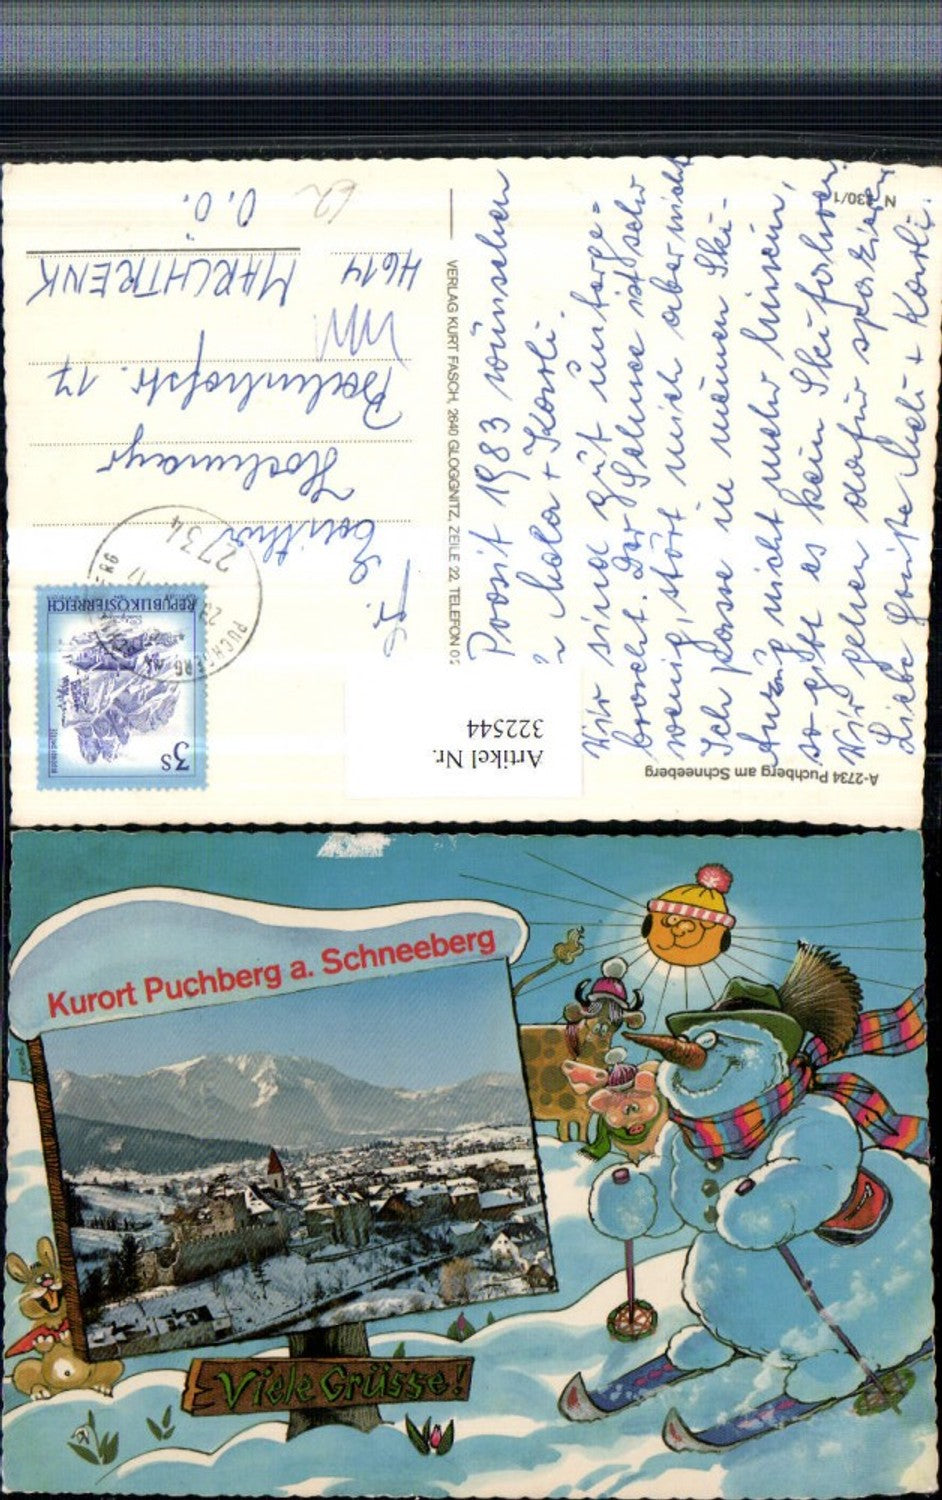 Prosit 1983 wünschen
Hela + Karli.
Wir sind gut unterge=
bracht. Der Schnee ist sehr
wenig, stört mich aber nicht
Ich passe in meinen Ski-
Anzug nicht mehr hinein,
so gibt es kein Skifahren.
Wir gehen dafür spazieren
Liebe Grüße Heli + Karli.
N 130/1
A-2734 Puchberg am Schneeberg
VERLAG KURT FASCH, 2640 GLOGGNITZ, ZEILE 22, TELEFON 02
Artikel Nr.
322544
3 S
REPUBLIK ÖSTERREICH
2734
PUCHBERG AM
Fr.
Hochmayr
Bahnhofstr. 17
4614
MARCHTRENK
O.Ö.
Kurort Puchberg a. Schneeberg
Viele Grüsse!